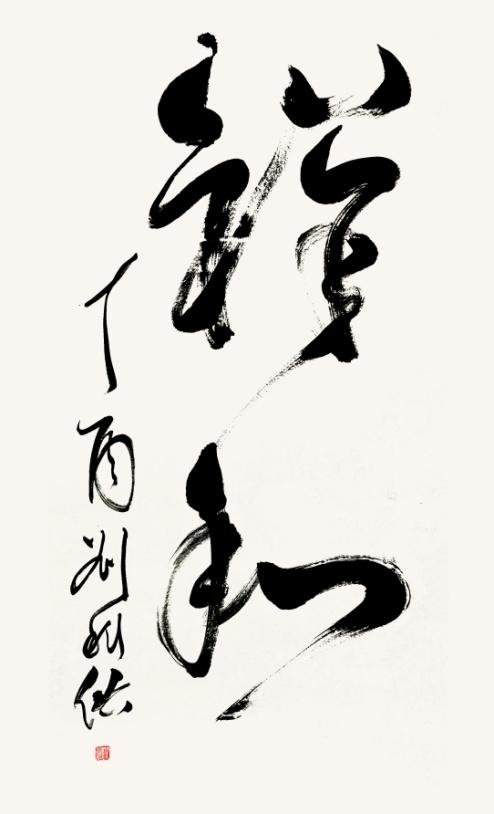 謙和
丁酉刘